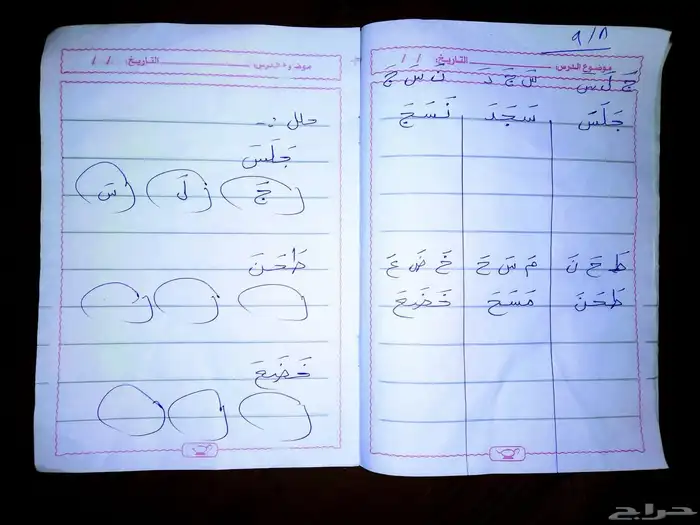 ٩/٨
موضوع الدرس: التاريخ: / /
جَ لَ سَ سَ جَ دَ نَ سَ جَ
جَلَسَ سَجَدَ نَسَجَ
طَ حَ نَ مَ سَ حَ خَ ضَ عَ
طَحَنَ مَسَحَ خَضَعَ
موضوع الدرس: التاريخ: / /
حلل :-
جَلَسَ
جَ لَ سَ
طَحَنَ
خَضَعَ
حراج